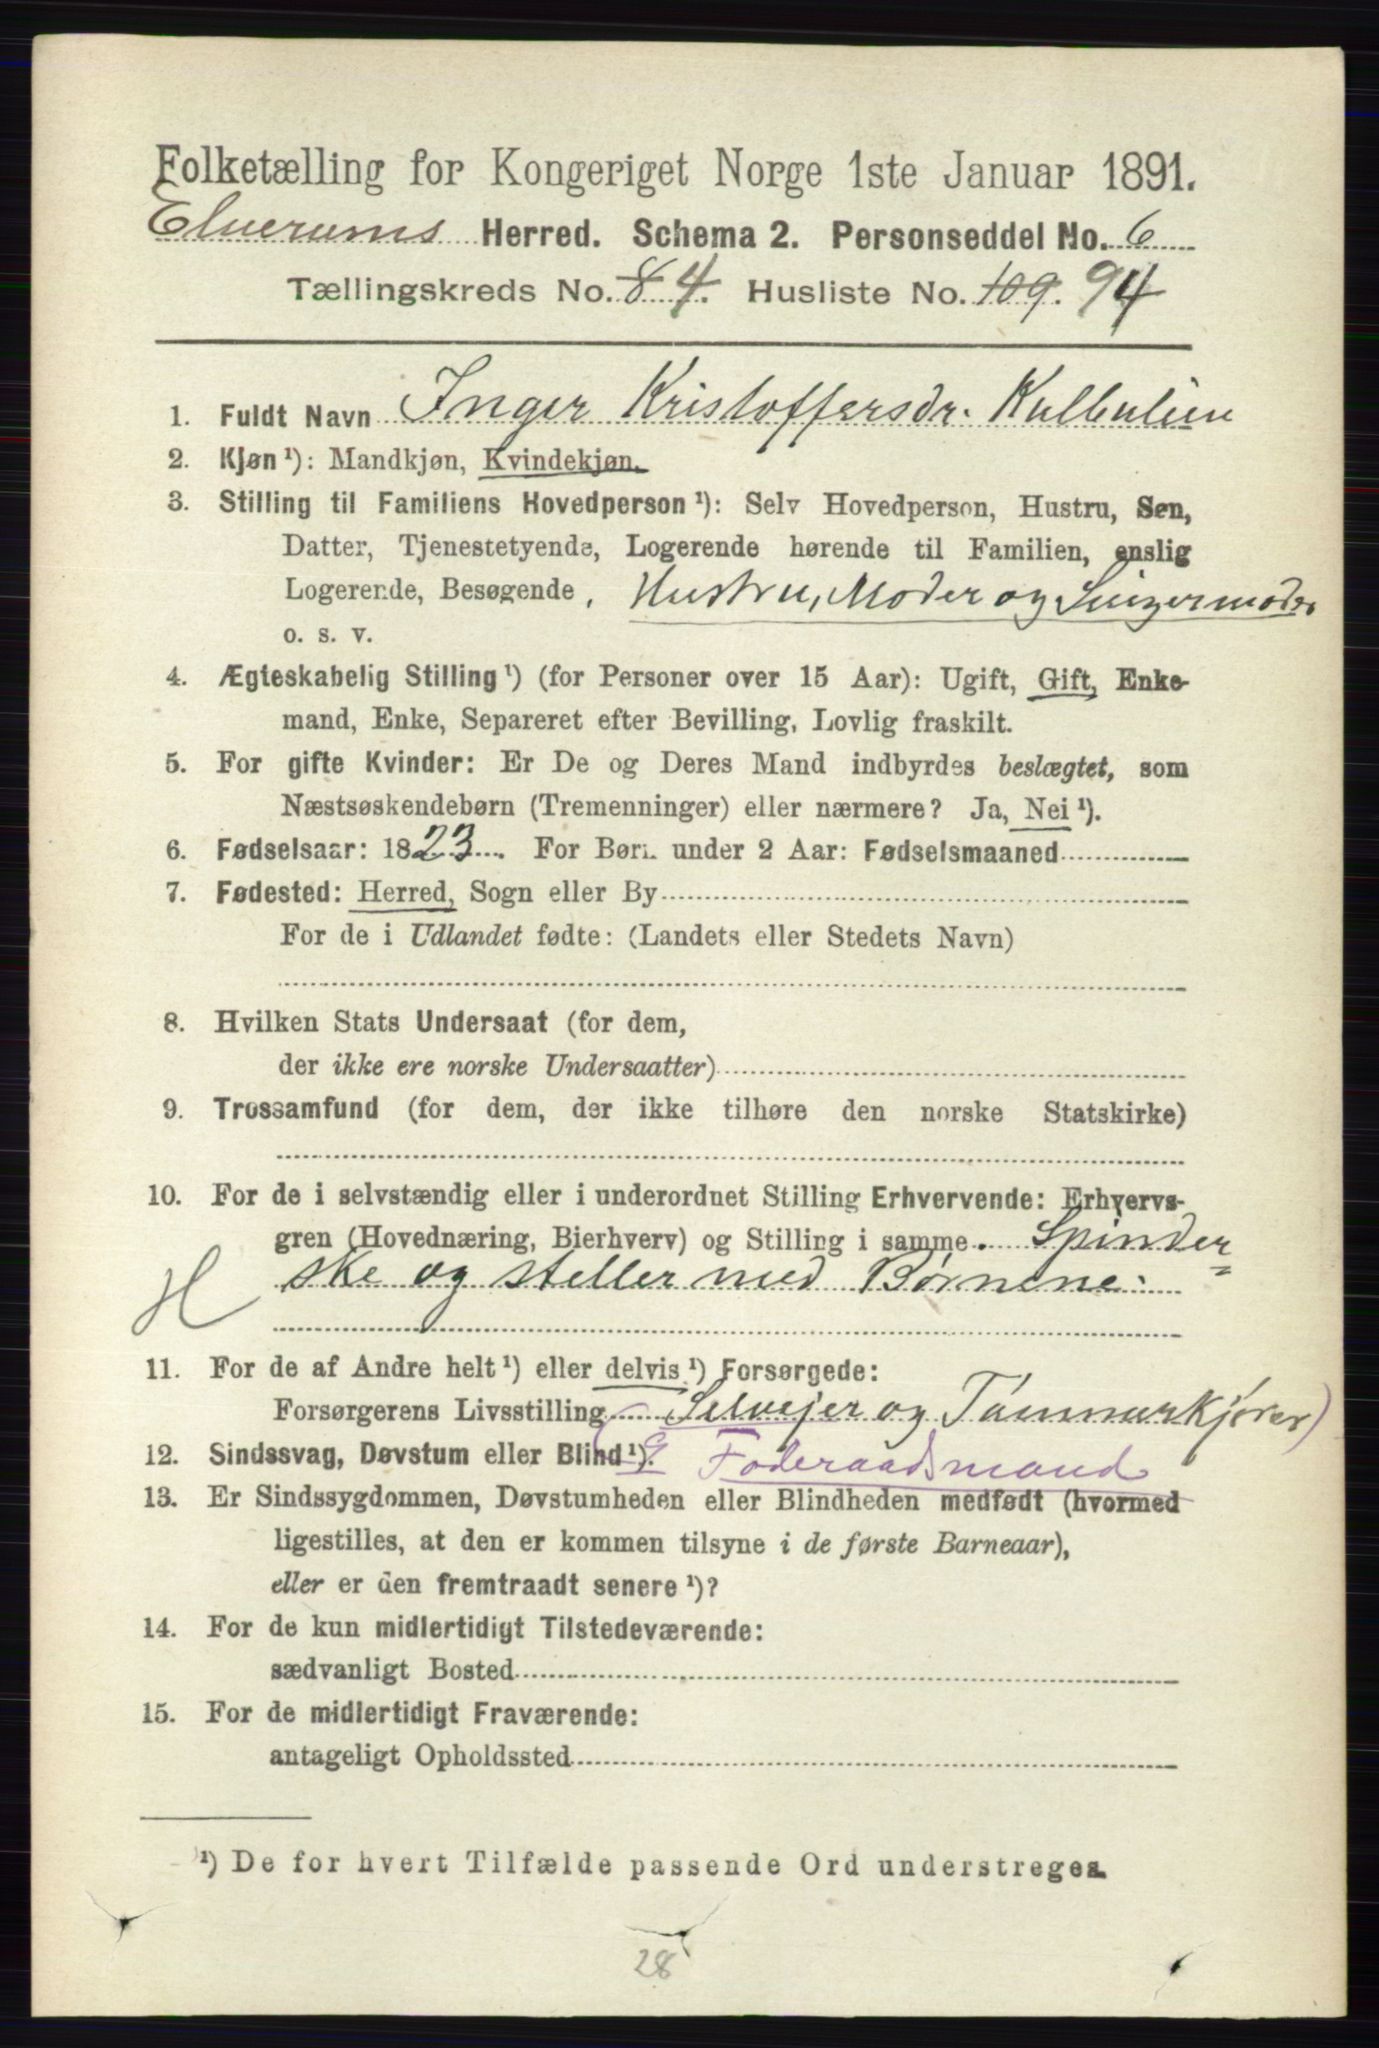 Folketælling for Kongeriget Norge 1ste Januar 1891.
Elverums Herred. Schema 2. Personseddel No. 6
Tællingskreds No. 8 4. Husliste No. 109. 94
1. Fuldt Navn Inger Kristoffersdr. Kulbulien
2. Kjøn ¹): Mandkjøn, Kvindekjøn.
3. Stilling til Familiens Hovedperson ¹): Selv Hovedperson, Hustru, Søn,
Datter, Tjenestetyende, Logerende hørende til Familien, enslig
Logerende, Besøgende, Hustru, Moder og Svigermoder
o. s. v.
4. Ægteskabelig Stilling ¹) (for Personer over 15 Aar): Ugift, Gift, Enke-
mand, Enke, Separeret efter Bevilling, Lovlig fraskilt.
5. For gifte Kvinder: Er De og Deres Mand indbyrdes beslægtet, som
Næstsøskendebørn (Tremenninger) eller nærmere? Ja, Nei ¹).
6. Fødselsaar: 1823. For Børn under 2 Aar: Fødselsmaaned
7. Fødested: Herred, Sogn eller By
For de i Udlandet fødte: (Landets eller Stedets Navn)
8. Hvilken Stats Undersaat (for dem,
der ikke ere norske Undersaatter)
9. Trossamfund (for dem, der ikke tilhøre den norske Statskirke)
10. For de i selvstændig eller i underordnet Stilling Erhvervende: Erhvervs-
gren (Hovednæring, Bierhverv) og Stilling i samme. Spinder=
H ske og steller med Børnene.
11. For de af Andre helt ¹) eller delvis ¹) Forsørgede:
Forsørgerens Livsstilling (Selvejer og Tømmerkjører)
12. Sindssvag, Døvstum eller Blind ¹). G Føderaadsmand
13. Er Sindssygdommen, Døvstumheden eller Blindheden medfødt (hvormed
ligestilles, at den er kommen tilsyne i de første Barneaar),
eller er den fremtraadt senere ¹)?
14. For de kun midlertidigt Tilstedeværende:
sædvanligt Bosted
15. For de midlertidigt Fraværende:
antageligt Opholdssted
¹) De for hvert Tilfælde passende Ord understreges.
28